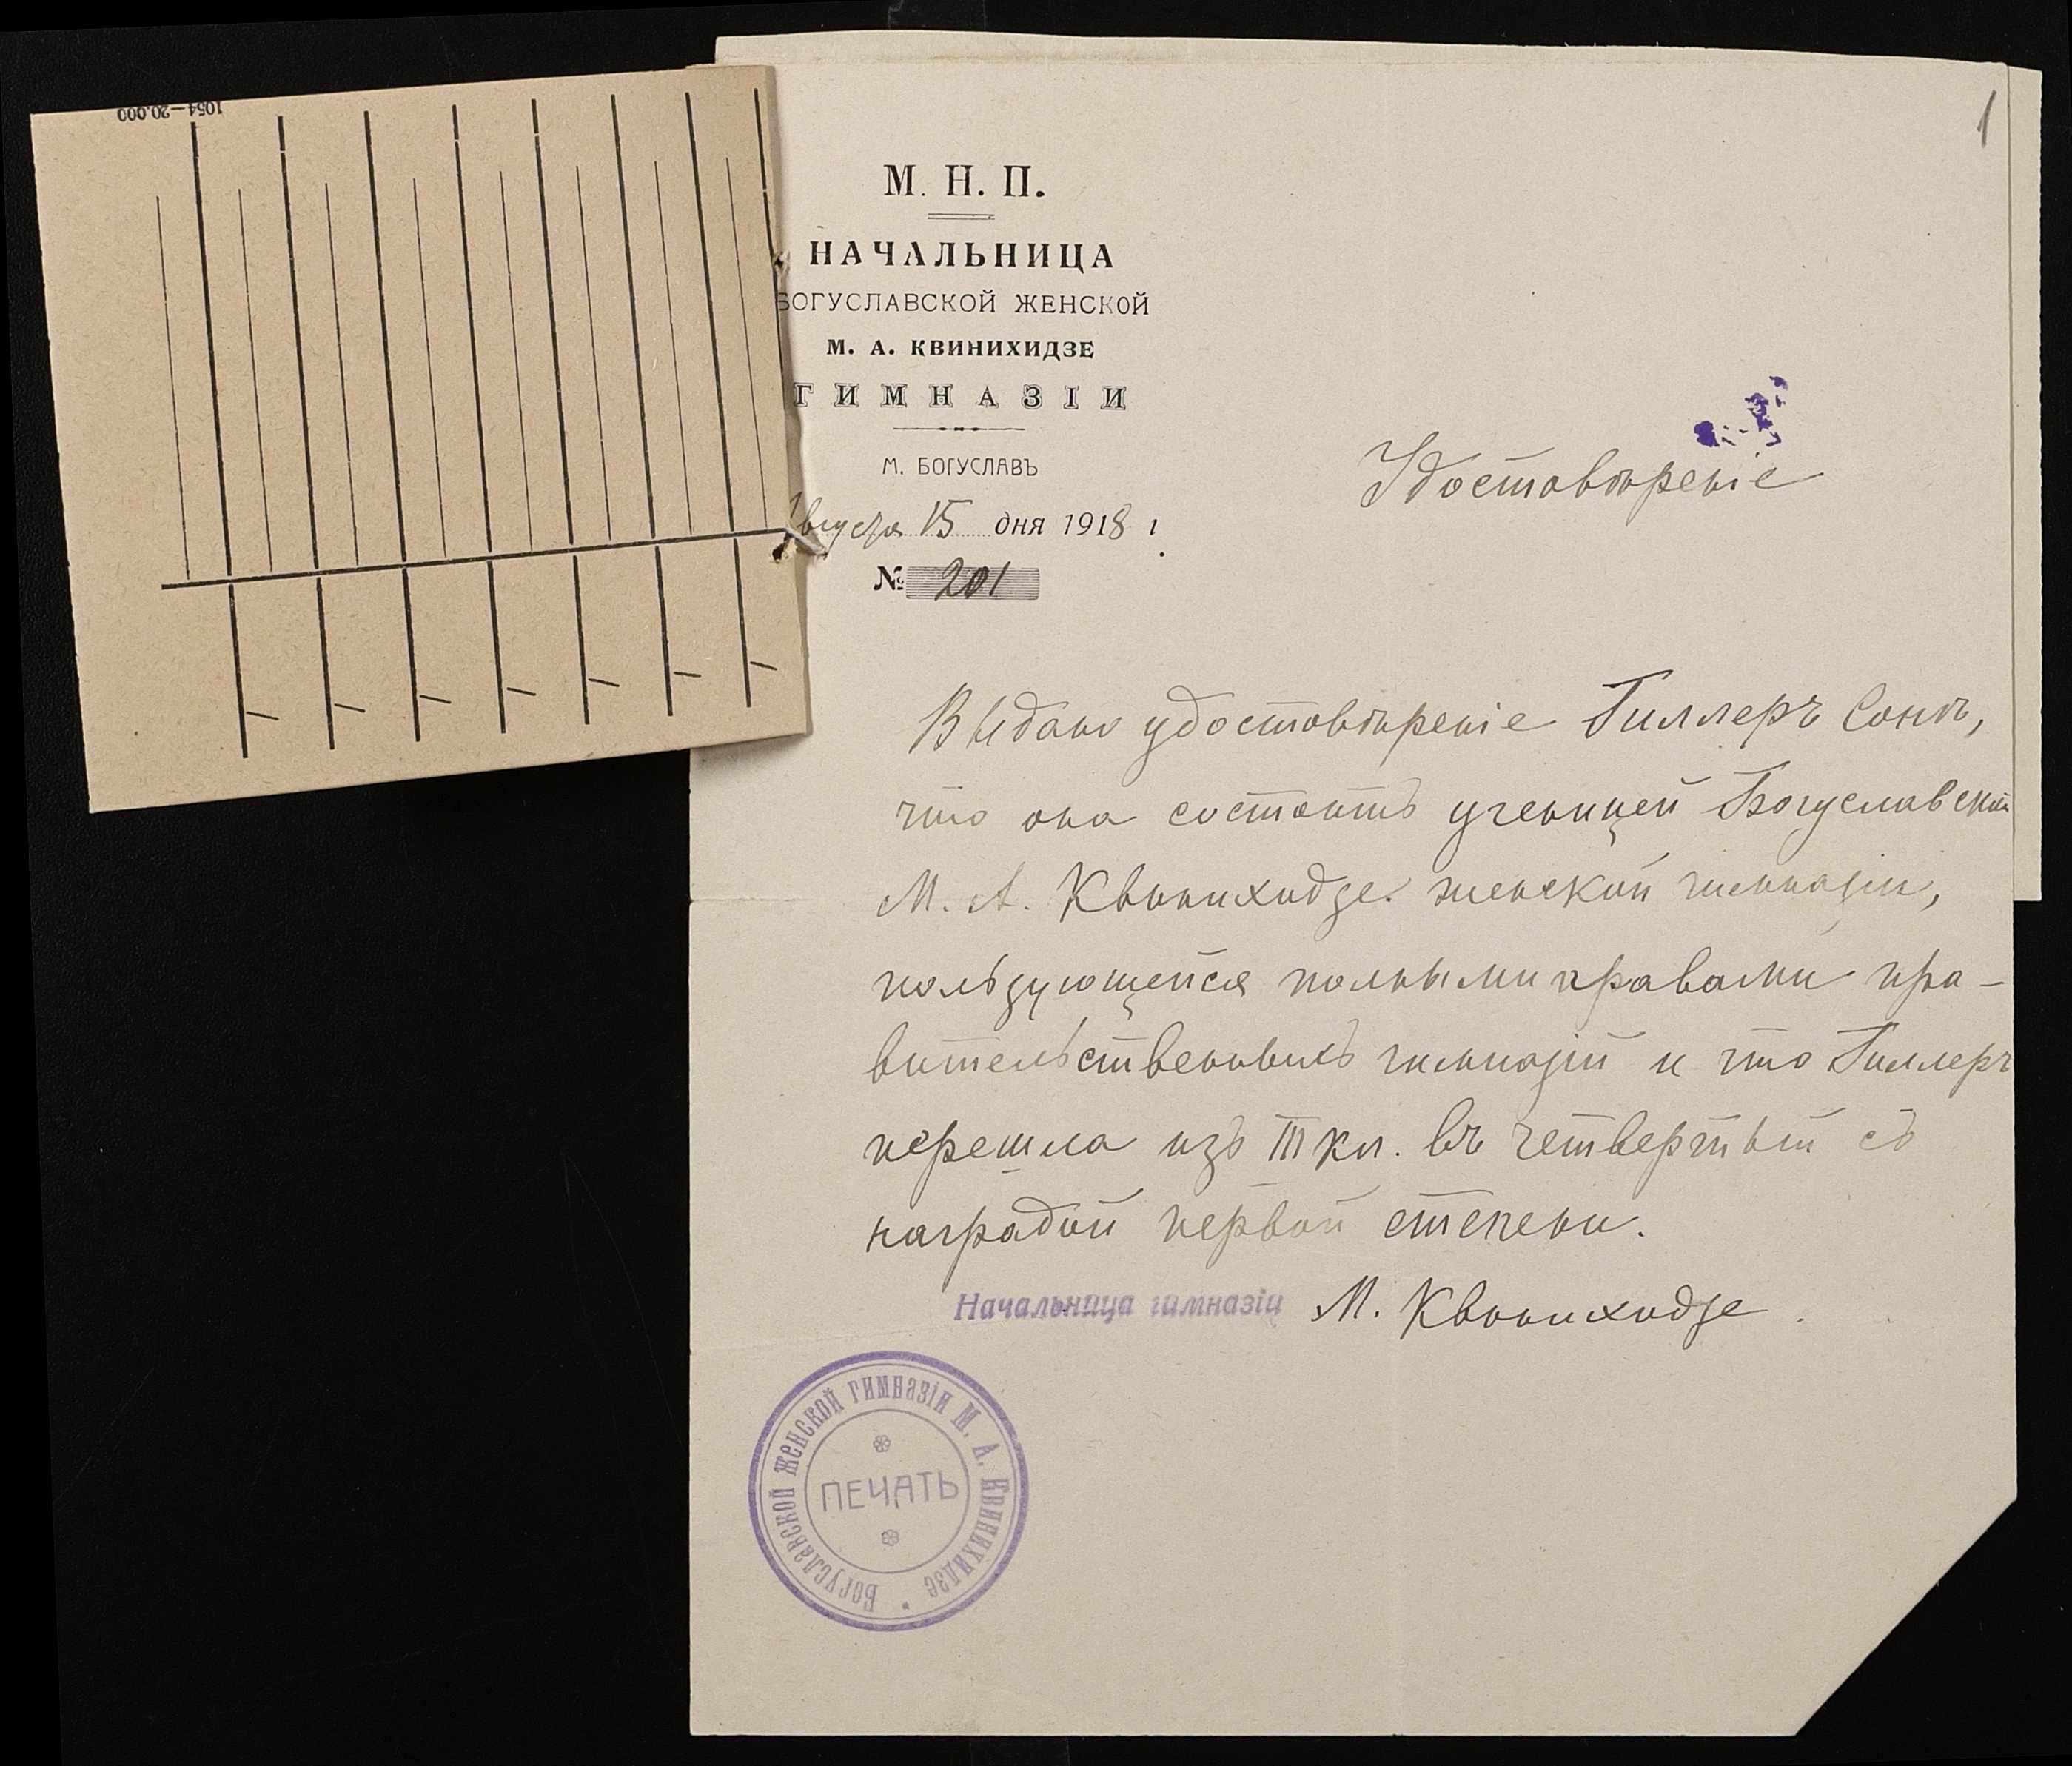 1054—20.000
1
М. Н. П.
НАЧАЛЬНИЦА
БОГУСЛАВСКОЙ ЖЕНСКОЙ
М. А. КВИНИХИДЗЕ
ГИМНАЗІИ
М. БОГУСЛАВЪ
Августа 15 дня 1918 г.
№ 201
Удостовѣреніе
Выдано удостовѣреніе Гиллеръ Сонѣ,
что она состоитъ ученицей Богуславской
М. А. Квинихидзе женской гимназіи,
пользующейся полными правами пра-
вительственныхъ гимназій и что Гиллеръ
перешла изъ III кл. въ четвертый съ
наградой первой степени.
Начальница гимназіи М. Квинихидзе.
Богуславской Женской Гимназіи М. А. Квинихидзе
ПЕЧАТЬ